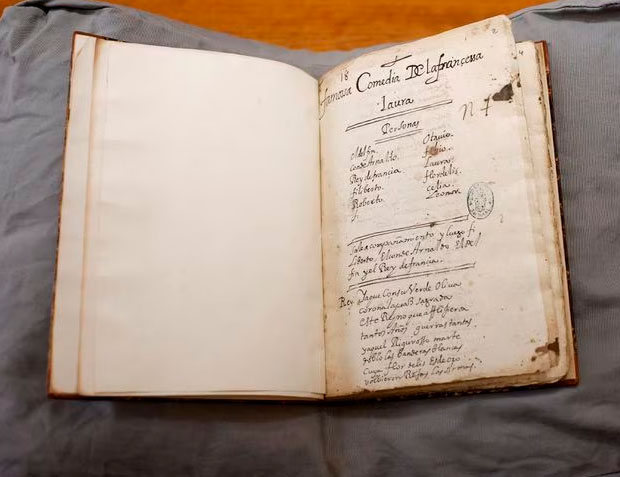 18
famosa Comedia De la françessa
Laura
N 7
Personas
el delfin. Otavio.
Conde Arnaldo. fabio.
Rey de francia Laura.
filiberto. flordelis.
Roberto. celia.
Leonora
Sale acompañamiento y luego fi
liberto, el conde Arnaldo, el Del
fin y el Rey de francia.
Rey ya que Con su Verde Oliva
corona la paz sagrada
este Reyno que
tantos años guerras tantas
y aquel Riguroso marte
las banderas blancas
cuya flor de lis de oro
volvieron Rojas las Armas.